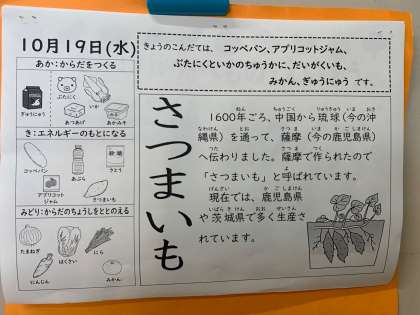 10月19日(水)
きょうのこんだては、コッペパン、アプリコットジャム、
ぶたにくといかのちゅうかに、だいがくいも、
みかん、ぎゅうにゅう です。
あか：からだをつくる
ぎゅうにゅう
ぶたにく
いか
あつあげ
あかみそ
き：エネルギーのもとになる
コッペパン
あぶら
砂糖
さとう
アプリコット
ジャム
さつまいも
みどり：からだのちょうしをととのえる
たまねぎ
はくさい
にら
にんじん
みかん
さつまいも
1600年ごろ、中国から琉球（今の沖
縄県）を通って、薩摩（今の鹿児島県）
へ伝わりました。薩摩で作られたので
「さつまいも」と呼ばれています。
現在では、鹿児島県
や茨城県で多く生産さ
れています。